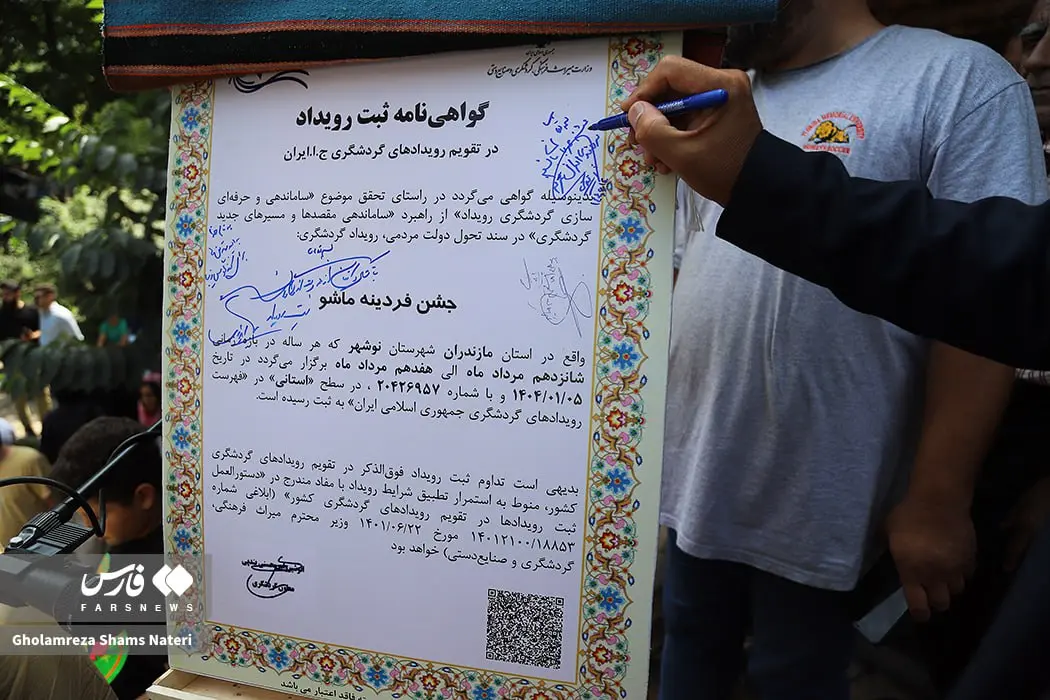 وزارت میراث فرهنگی، گردشگری و صنایع‌دستی
گواهی‌نامه ثبت رویداد
در تقویم رویدادهای گردشگری ج.ا.ایران
بدینوسیله گواهی می‌گردد در راستای تحقق موضوع «ساماندهی و حرفه‌ای
سازی گردشگری رویداد» از راهبرد «ساماندهی مقصدها و مسیرهای جدید
گردشگری» در سند تحول دولت مردمی، رویداد گردشگری:
جشن فردینه ماشو
واقع در استان مازندران شهرستان نوشهر که هر ساله در بازه زمانی
شانزدهم مرداد ماه الی هفدهم مرداد ماه برگزار می‌گردد در تاریخ
۱۴۰۴/۰۱/۰۵ و با شماره ۲۰۴۲۶۹۵۷ ، در سطح «استانی» در «فهرست
رویدادهای گردشگری جمهوری اسلامی ایران» به ثبت رسیده است.
بدیهی است تداوم ثبت رویداد فوق‌الذکر در تقویم رویدادهای گردشگری
کشور، منوط به استمرار تطبیق شرایط رویداد با مفاد مندرج در «دستورالعمل
ثبت رویدادها در تقویم رویدادهای گردشگری کشور» (ابلاغی شماره
۱۴۰۱۲۱۰۰/۱۸۸۵۳ مورخ ۱۴۰۱/۰۶/۲۲ وزیر محترم میراث فرهنگی،
گردشگری و صنایع‌دستی) خواهد بود
معاون گردشگری
فاقد اعتبار می باشد
فارس
FARSNEWS
Gholamreza Shams Nateri